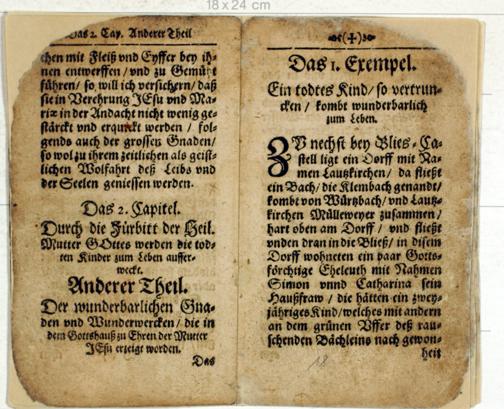 18 x 24 cm
Das 2. Cap. Anderer Theil
chen mit Fleiß vnd Eyffer bey ih-
nen entwerffen / vnd zu Gemüht
führen / so will ich versichern / daß
sie in Verehrung JEsu vnd Ma-
riæ in der Andacht nicht wenig ge-
stärckt vnd erquickt werden / fol-
gends auch der grossen Gnaden /
so wol zu ihrem zeitlichen als geist-
lichen Wolfahrt deß Leibs vnd
der Seelen geniessen werden.
Das 2. Capitel.
Durch die Fürbitt der Heil.
Mutter GOttes werden die tod-
ten Kinder zum Leben auffer-
weckt.
Anderer Theil.
Der wunderbarlichen Gna-
den vnd Wunderwercken / die in
dem Gottshauß zu Ehren der Mutter
JEsu erzeigt worden.
Das
(+)
Das 1. Exempel.
Ein todtes Kind / so vertrun-
cken / kombt wunderbarlich
zum Leben.
ZV nechst bey Blies-Ca-
stell ligt ein Dorff mit Na-
men Lautzkirchen / da fließt
ein Bach / die Klembach genandt /
kombt von Würtzbach / vnd Lautz-
kirchen Mülleweyer zusammen /
hart oben am Dorff / vnd fließt
vnden dran in die Bließ / in disem
Dorff wohneten ein paar Gotts-
förchtige Eheleuth mit Nahmen
Simon vnnd Catharina sein
Haußfraw / die hätten ein zwey-
jähriges Kind / welches mit andern
an dem grünen Vffer deß rau-
schenden Bächleins nach gewon-
heit
18